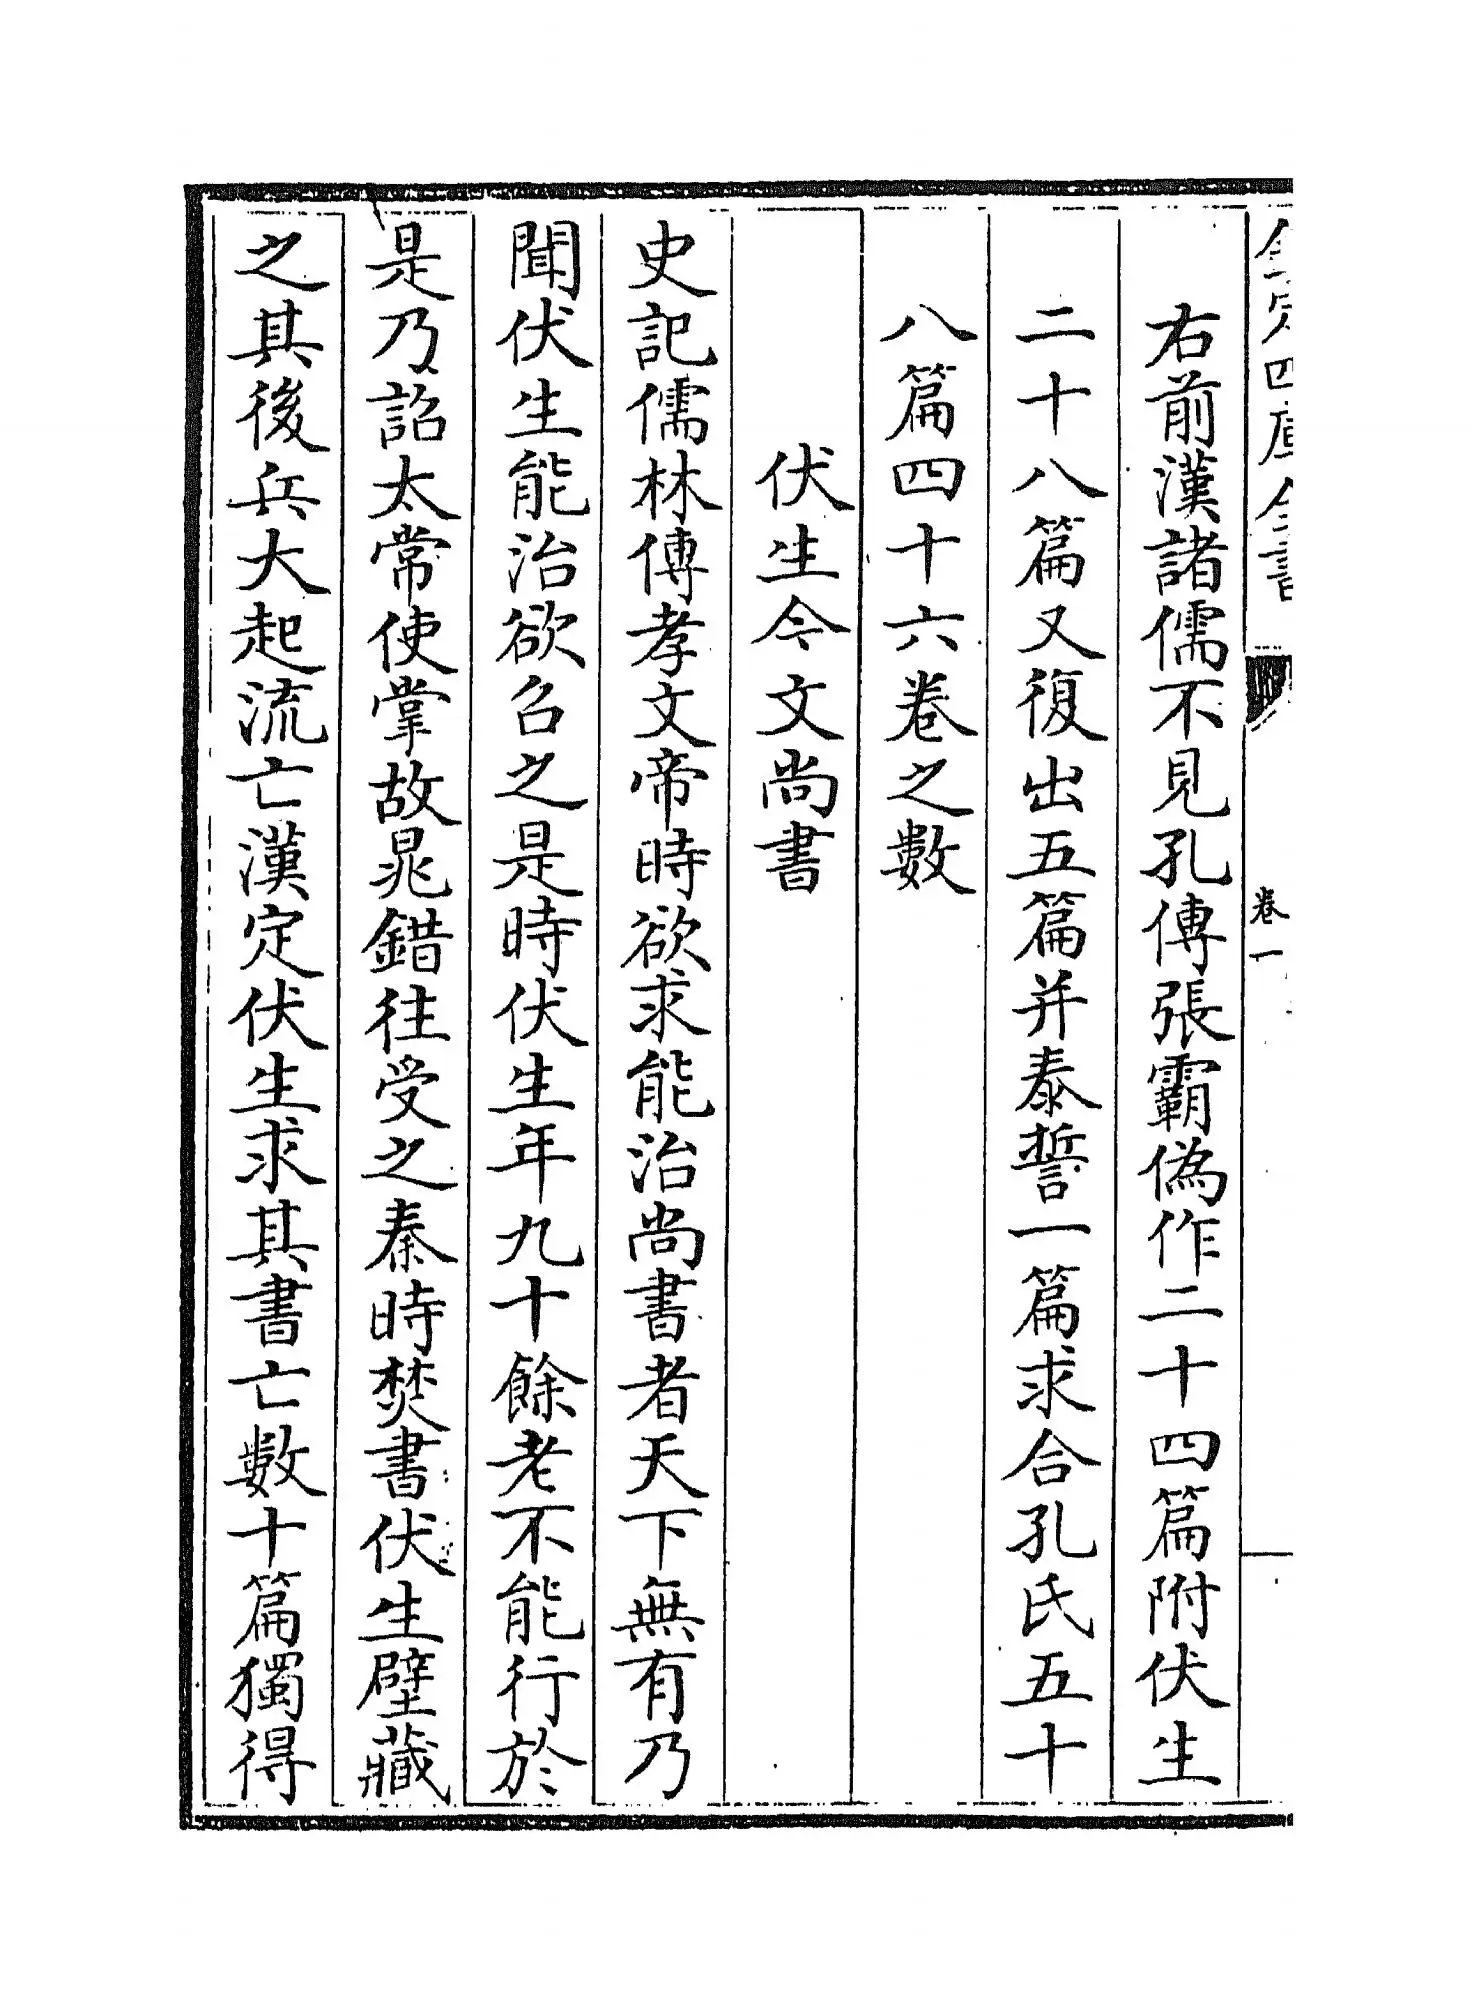 欽定四庫全書
卷一
右前漢諸儒不見孔傳張霸偽作二十四篇附伏生
二十八篇又復出五篇并泰誓一篇求合孔氏五十
八篇四十六卷之數
伏生今文尚書
史記儒林傳孝文帝時欲求能治尚書者天下無有乃
聞伏生能治欲召之是時伏生年九十餘老不能行於
是乃詔太常使掌故晁錯往受之秦時焚書伏生壁藏
之其後兵大起流亡漢定伏生求其書亡數十篇獨得